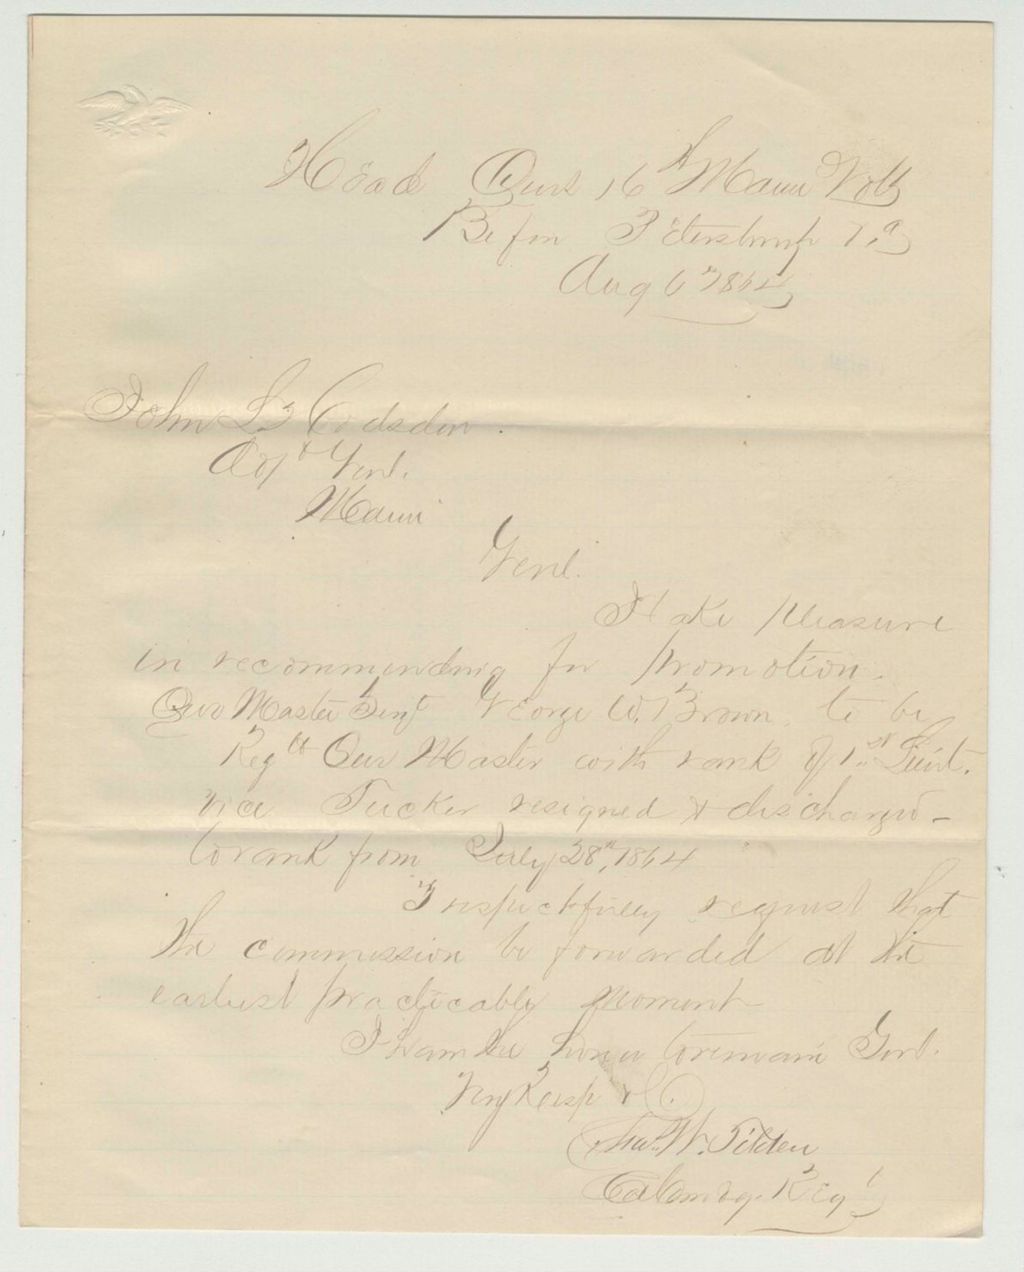 Head Qurs 16th Maine Vols
Before Petersburg Va
Aug 6th 1864
John L. Hodsdon.
Adjt Genl.
Maine
Genl.
I take pleasure
in recommending for promotion.
Qur Master Sergt George W. Brown, to be
Regtl Qur Master with rank of 1st Lieut.
vice Tucker resigned & discharged -
to rank from July 28th, 1864
I respectfully request that
the commission be forwarded at the
earliest practicably moment
I have the honor to remain Genl.
Very Resp &c.
Chas. W. Tilden
Col Comdg. Regt